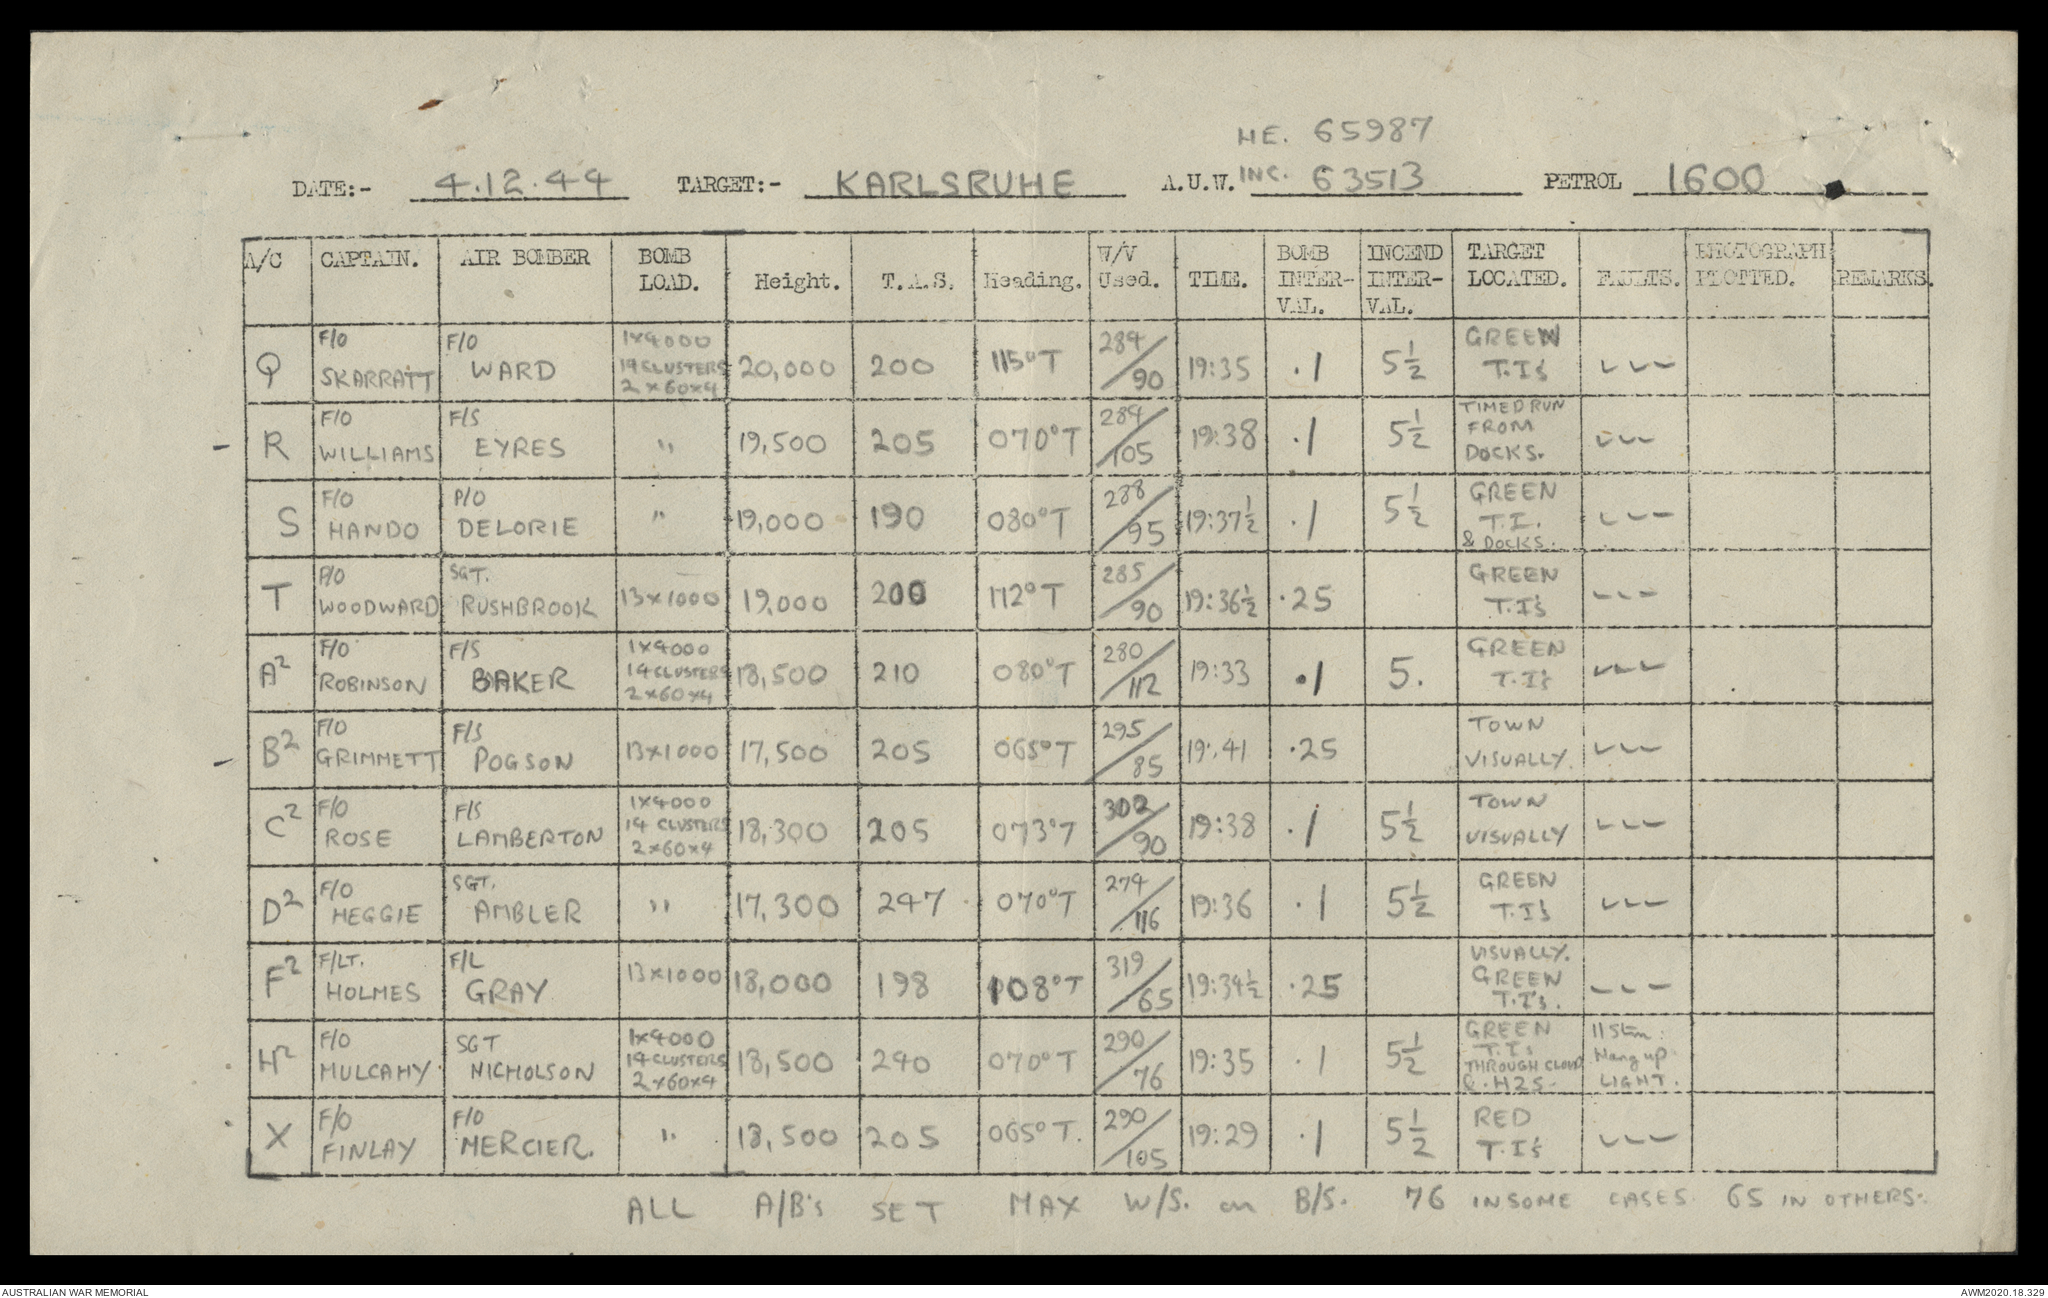 HE. 65987
DATE:- 4.12.44 TARGET:- KARLSRUHE A.U.W. INC. 63513 PETROL 1600
A/C CAPTAIN. AIR BOMBER BOMB LOAD. Height. T.A.S. Heading. W/V Used. TIME. BOMB INTER-VAL. INCEND INTER-VAL. TARGET LOCATED. FAULTS. PHOTOGRAPH PLOTTED. REMARKS.
Q F/O SKARRATT F/O WARD 1x4000 14 CLUSTERS 2x60x4 20,000 200 115°T 284/90 19:35 .1 5½ GREEN T.I's ---
- R F/O WILLIAMS F/S EYRES " 19,500 205 070°T 284/105 19:38 .1 5½ TIMED RUN FROM DOCKS. ---
S F/O HANDO P/O DELORIE " 19,000 190 080°T 288/95 19:37½ .1 5½ GREEN T.I. & DOCKS. ---
T P/O WOODWARD SGT. RUSHBROOK 13x1000 19,000 200 112°T 285/90 19:36½ .25 GREEN T.I's ---
A² F/O ROBINSON F/S BAKER 1x4000 14 CLUSTERS 2x60x4 18,500 210 080°T 280/112 19:33 .1 5. GREEN T.I's ---
- B² F/O GRIMMETT F/S POGSON 13x1000 17,500 205 065°T 295/85 19:41 .25 TOWN VISUALLY. ---
C² F/O ROSE F/S LAMBERTON 1x4000 14 CLUSTERS 2x60x4 18,300 205 073°T 302/90 19:38 .1 5½ TOWN VISUALLY ---
D² F/O HEGGIE SGT. AMBLER " 17,300 247 070°T 274/116 19:36 .1 5½ GREEN T.I's ---
F² F/LT. HOLMES F/L GRAY 13x1000 18,000 198 108°T 319/65 19:34½ .25 VISUALLY. GREEN T.I's. ---
H² F/O MULCAHY SGT NICHOLSON 1x4000 14 CLUSTERS 2x60x4 18,500 240 070°T 290/76 19:35 .1 5½ GREEN T.I's THROUGH CLOUD & H2S. Hang up LIGHT.
X F/O FINLAY F/O MERCIER. " 18,500 205 065°T. 290/105 19:29 .1 5½ RED T.I's ---
ALL A/B's SET MAX W/S. on B/S. 76 IN SOME CASES. 65 IN OTHERS.
AUSTRALIAN WAR MEMORIAL AWM2020.18.329